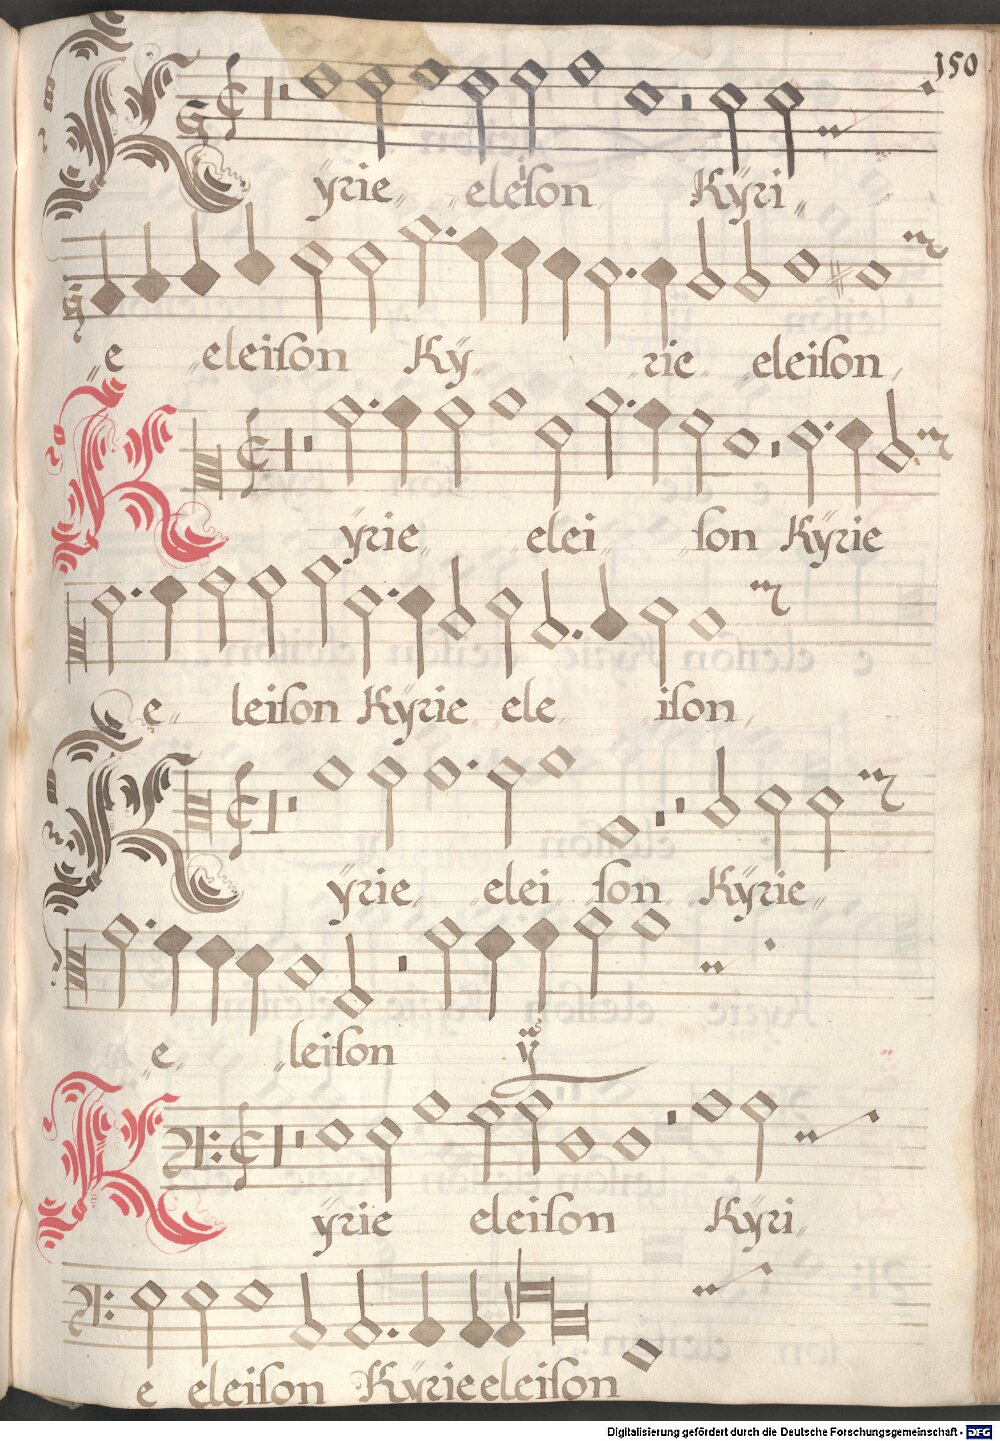 150
Kÿrie eleison Kÿri
e eleison Kÿ rie eleison
Kÿrie elei son Kÿrie
e leison Kÿrie ele ison
Kÿrie elei son Kÿrie
e leison ÿ
Kÿrie eleison Kÿri
e eleison Kÿrie eleison
Digitalisierung gefördert durch die Deutsche Forschungsgemeinschaft - DFG